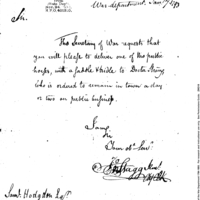 War department, Jan
Sir,
The Secretary of War requests that
you will please to deliver one of the public
horses, with a saddle & bridle to Doctor Strong,
who is ordered to remain in town a day
or two on public business.
I am,
Sir
Your
Jno Stagg Junr
Saml Hodgdon Esqr